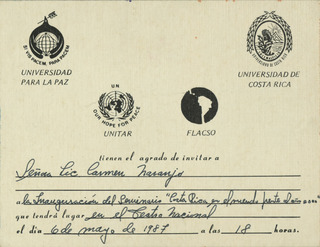 SI VIS PACEM, PARA PACEM
UNIVERSIDAD
PARA LA PAZ
UNIVERSIDAD DE
COSTA RICA
UN
OUR HOPE FOR PEACE
UNITAR
FLACSO
tienen el agrado de invitar a
Señora Lic Carmen Naranjo
a la Inauguración del Seminario "Costa Rica en el mundo
que tendrá lugar en el Teatro Nacional
el día 6 de mayo de 1987 a las 18 horas.